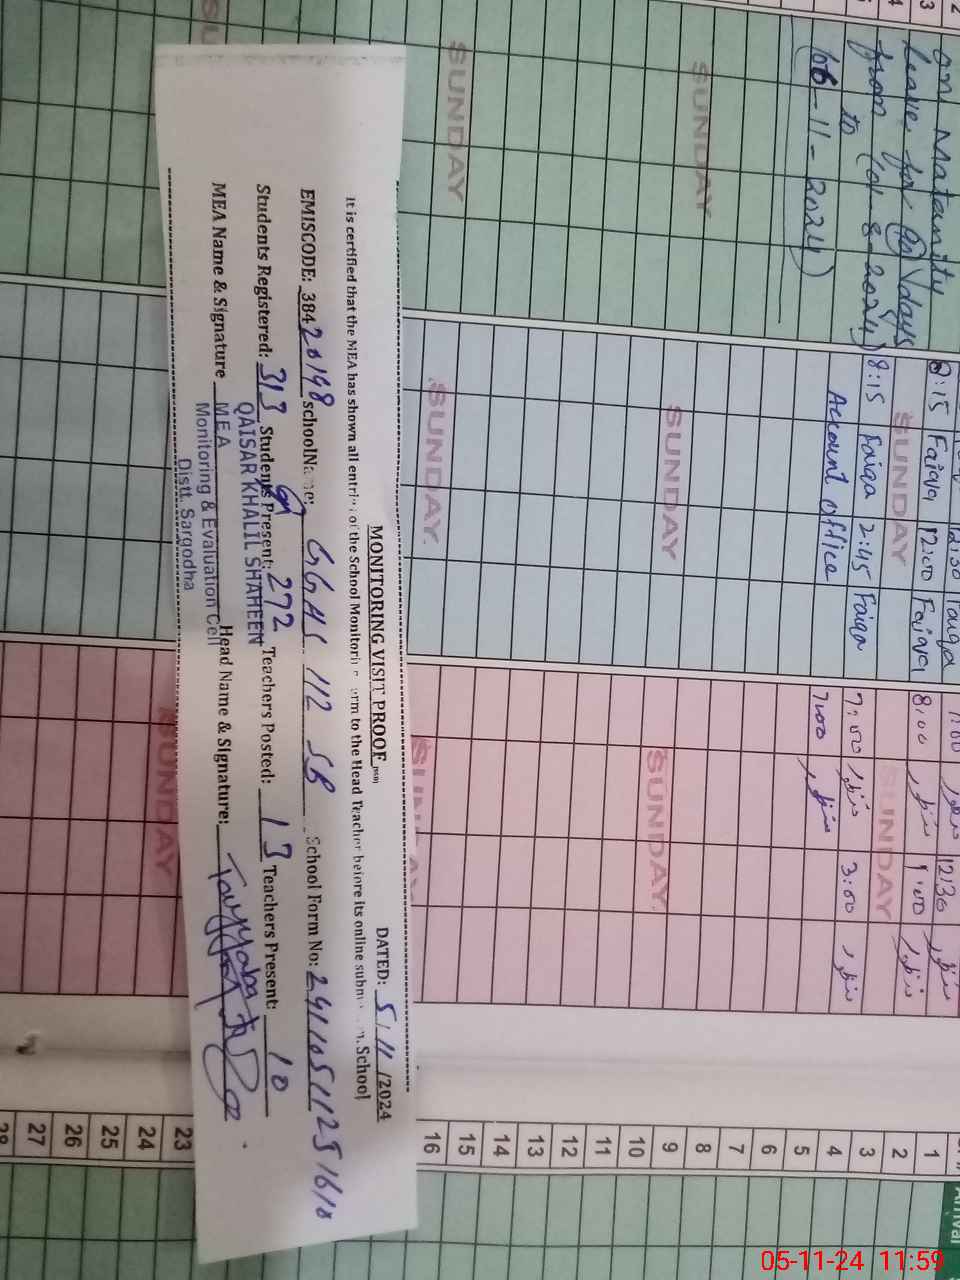 on Matanity
leave for 90 days
from (01-8-2024)
to
(06-11-2024)
SUNDAY
SUNDAY
12:30 Faiqa
8:15 Faiqa 12:00 Faiqa
SUNDAY
8:15 Faiqa 2:45 Faiqa
Account office
SUNDAY
SUNDAY.
منظور 12:30 منظور
8:00 منظور 1:00 منظور
SUNDAY
7:00 منظور 3:00 منظور
7:00 منظور
SUNDAY.
SUNDAY
SUNDAY
MONITORING VISIT PROOF
DATED: 5/11/2024
It is certified that the MEA has shown all entries of the School Monitoring Form to the Head Teacher before its online submission. School
EMISCODE: 38420198 schoolName: GGHS 112 SB School Form No: 24110511251610
Students Registered: 313 Students Present: 272 Teachers Posted: 13 Teachers Present: 10
MEA Name & Signature Head Name & Signature: Tayyaba
QAISAR KHALIL SHAHEEN
MEA
Monitoring & Evaluation Cell
Distt. Sargodha
1
2
3
4
5
6
7
8
9
10
11
12
13
14
15
16
23
24
25
26
27
28
Arrival
05-11-24 11:59